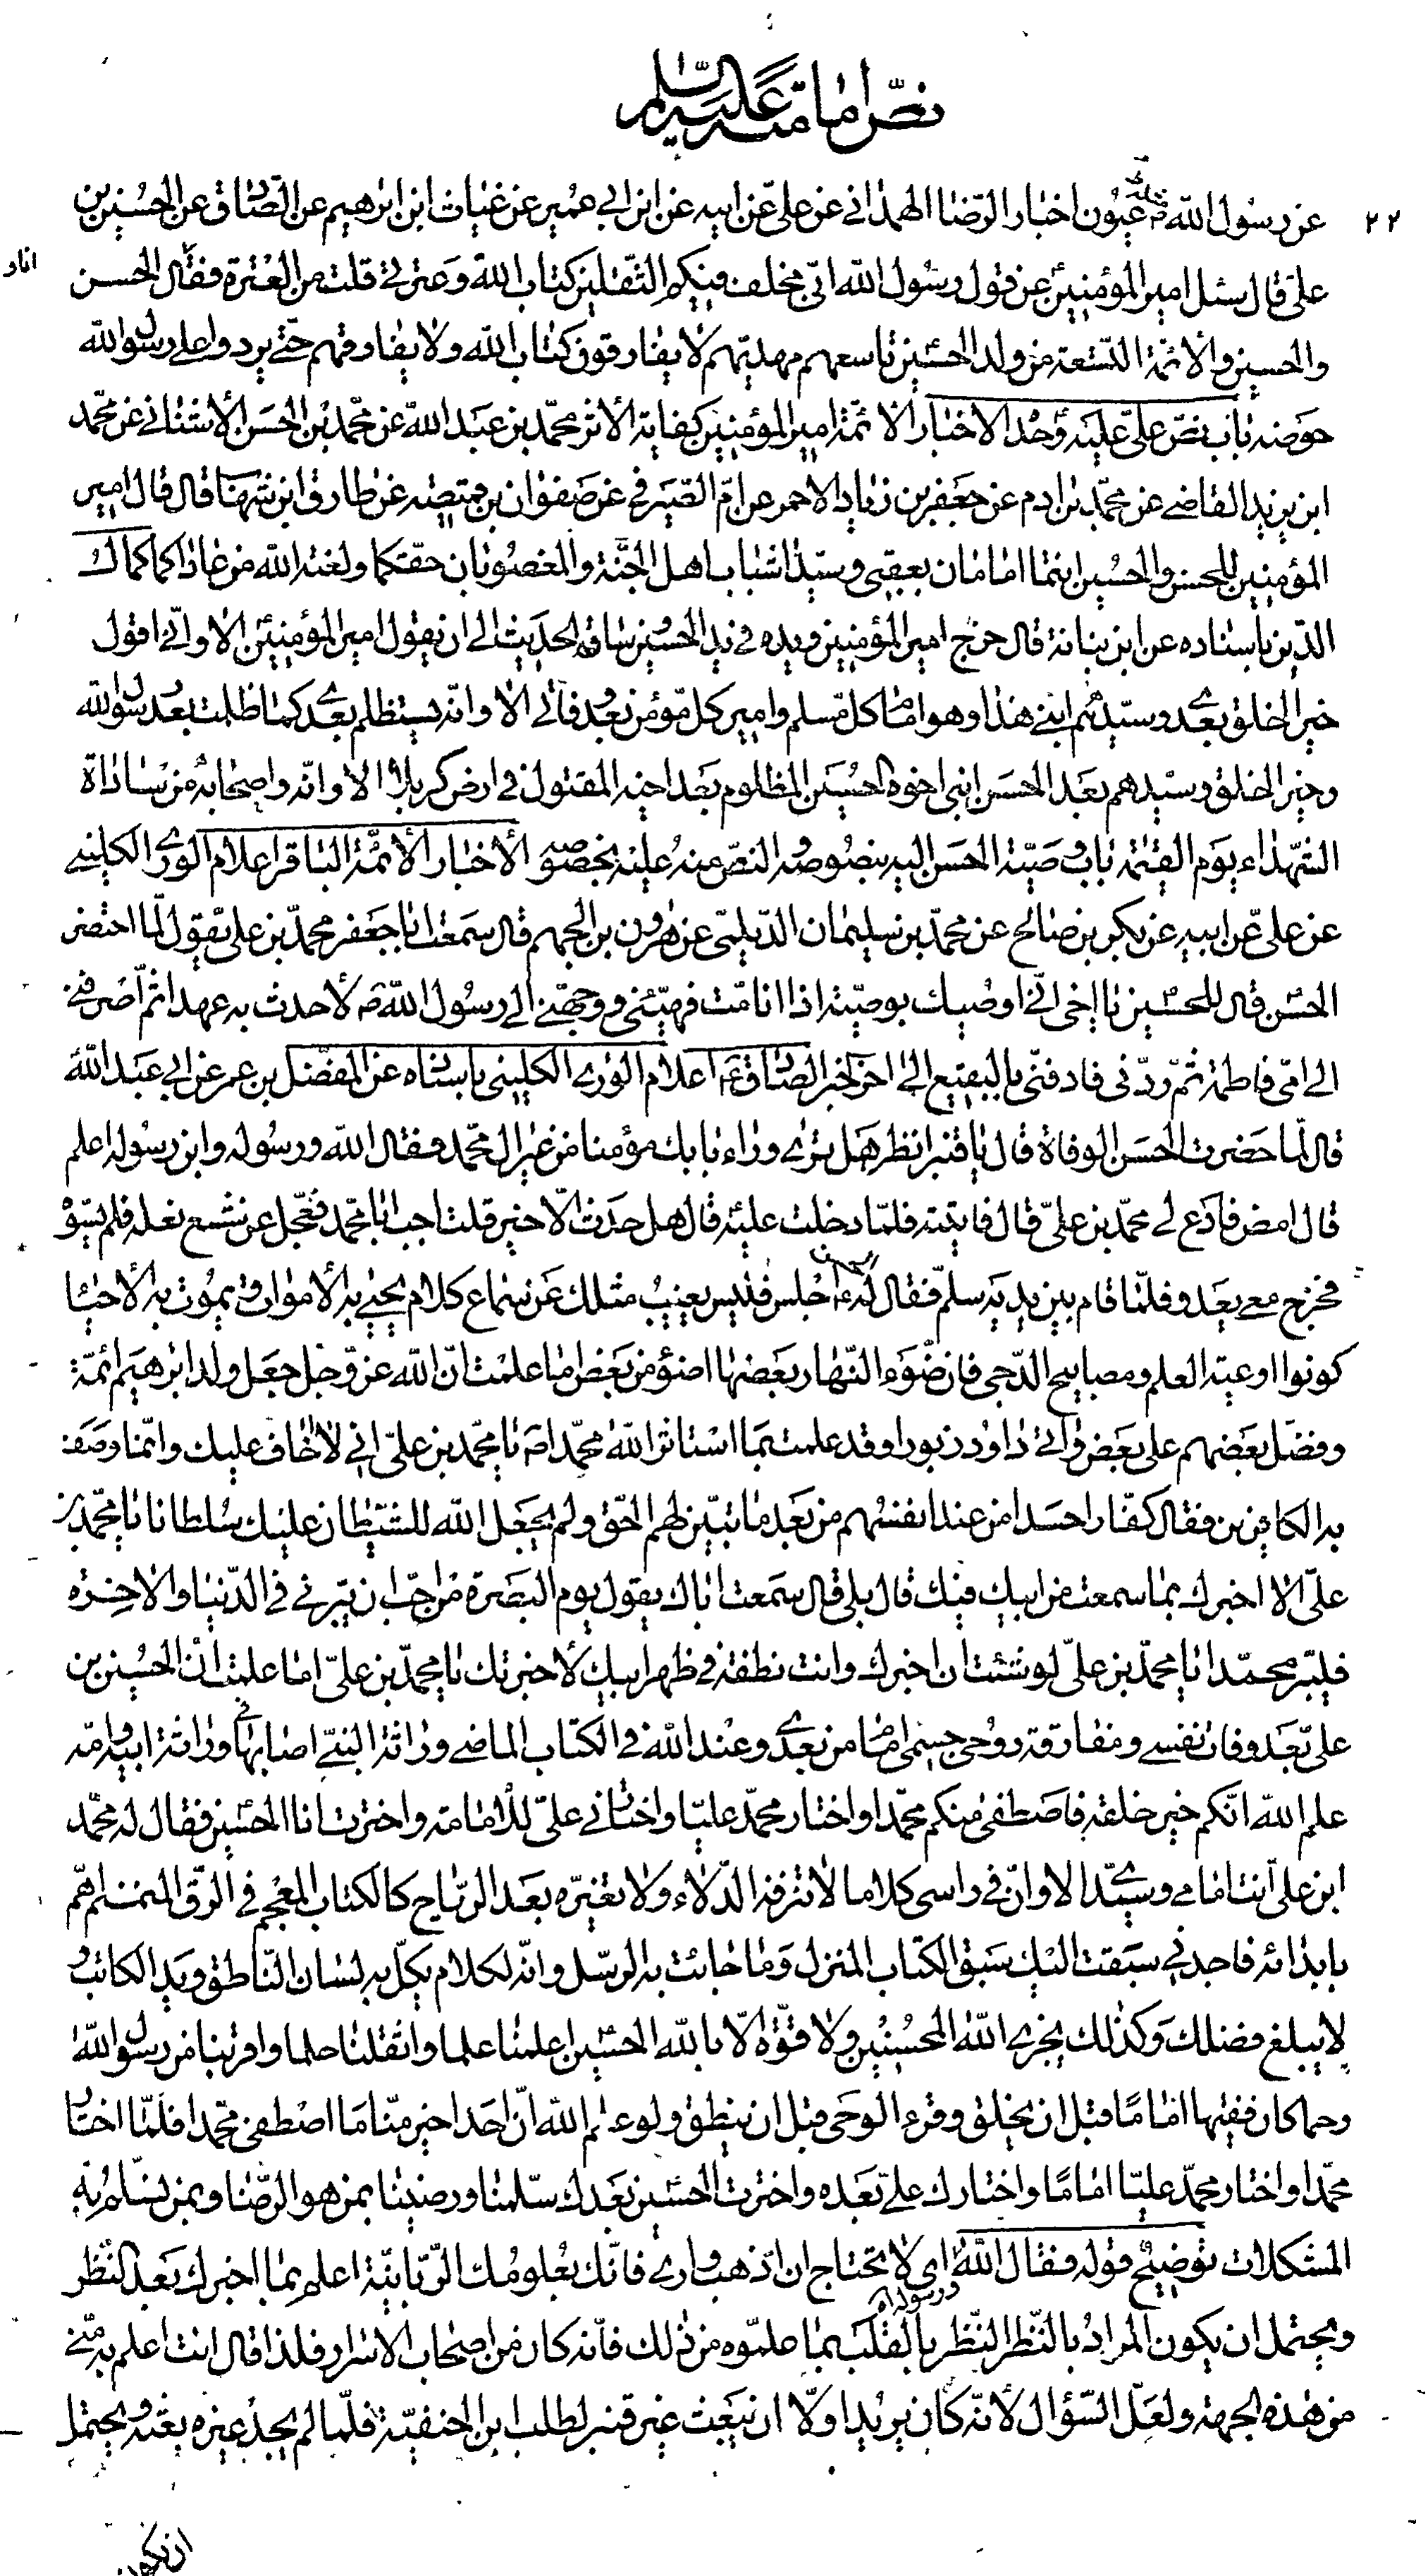 نصّ امامته عليه السّلم
٢٢
عن رسول الله ص عيون اخبار الرّضا الهمدانى عن علىّ عن ابيه عن ابن ابي عمير عن غياث ابن ابرهيم عن الصّادق عن الحسين بن
علىّ قال سئل امير المؤمنينؑ عن قول رسول الله انّي مخلف فيكم الثّقلين كتاب الله وعترتي قلت من العترة فقال الحسن
انا و
والحسين والائمّة التّسعة من ولد الحسين تاسعهم مهديّهم لا يفارقون كتاب الله ولا يفارقهم حتّى يردوا على رسول الله
حوضه باب نصّ علىّ عليه وحده الاخبار الائمّة امير المؤمنين كفاية الاثر محمّد بن عبد الله عن محمّد بن الحسن الأشناني عن محمّد
ابن يزيد القاضى عن محمّد بن ادم عن جعفر بن زياد الاحمر عن امّ الصّيرفى عن صفوان بن قبيصه عن طارق ابن شهاب قال قال امير
المؤمنين للحسن والحسين انتما امامان بعقبى وسيّدا شباب اهل الجنّة والمغصوبان حقّكما ولعنة الله من عاداكما كمال
الدّين باسناده عن ابن نباتة قال خرج امير المؤمنين ويده في يد الحسن وساق الحديث الى ان يقول امير المؤمنين الا وانّي اقول
خير الخلق بعدي وسيّدهم ابني هذا وهو امام كلّ مسلم وامير كلّ مؤمن بعد وفاتى الا وانّه سيظلم بعدى كما ظلمت بعد رسول الله
وخير الخلق وسيّدهم بعد الحسن ابنى اخوه الحسين المظلوم بعد اخيه المقتول في ارض كربلا الا وانّه واصحابه من سادات
الشّهداء يوم القيمة باب وصيّة الحسن اليه بنصوصه والنصّ منه عليه بخصوصه الأخبار الأئمّة الباقر اعلام الورى الكلينى
عن علىّ عن ابيه عن بكر بن صالح عن محمّد بن سليمان الدّيلمى عن هرون بن الجهم قال سمعت ابا جعفر محمّد بن علىّ يقول لمّا احتضر
الحسن قال للحسين يا اخى انّي اوصيك بوصيّة اذا انا متّ فهيّئنى ووجّهنى الى رسول الله ص لأحدث به عهدا ثمّ اصرفنى
الى امّى فاطمة ثمّ ردّنى فادفنّى بالبقيع الى اخر الخبر الصّادق ع اعلام الورى الكلينى باسناه عن المفضّل بن عمر عن ابى عبد الله
قال لمّا حضرت الحسن الوفاة قال يا قنبر انظر هل ترى وراء بابك مؤمنا من غير ال محمّد فقال الله ورسوله وابن رسوله اعلم
قال امض فادع لى محمّد بن علىّ قال فاتيته فلمّا دخلت عليه قال هل حدث الّا خير قلت اجب ابا محمّد فعجّل عن شسع نعله فلم يسوّه
فخرج معى يعدو فلمّا قام بين يديه سلّم فقال له الحسن اجلس فليس يغيب مثلك عن سماع كلام يحيى به الأموات ويموت به الأحيا
كونوا اوعية العلم ومصابيح الدّجى فان ضوء النّهار بعضها اضؤ من بعض اما علمت انّ الله عزّ وجلّ جعل ولد ابرهيم ائمّة
وفضّل بعضهم على بعض واتى داود زبورا وقد علمت بما استاثر الله محمّدا ص يا محمّد بن علىّ انى لا اخاف عليك وانّما وصف
به الكافرين فقال كفّارا حسدا من عند انفسهم من بعد ما تبيّن لهم الحقّ ولم يجعل الله للشّيطان عليك سلطانا يا محمّد بن
علىّ الا اخبرك بما سمعت من ابيك فيك قال بلى قال سمعت اباك يقول يوم البصرة من احبّ ان يبرّنى في الدّنيا والاخرة
فليبرّ محمّدا يا محمّد بن علىّ لو شئت ان اخبرك وانت نطفة في ظهر ابيك لأخبرتك يا محمّد بن علىّ اما علمت انّ الحسين بن
علىّ بعد وفات نفسى ومفارقة روحى جسمى امام من بعدى وعند الله في الكتاب الماضى وراثة النبىّ اصابها في وراثة ابيه وامّه
علم الله انّكم خير خلقه فاصطفى منكم محمّدا واختار محمّد عليّا واختارنى علىّ للامامة واخترت انا الحسين فقال له محمّد
ابن علىّ انت امامى وسيّدى الا وانّ في راسى كلاما لا تنزفه الدّلاء ولا تغيّره بعد الرّياح كالكتاب المعجم في الرّق المنمنم اهمّ
بابدائه فاجدنى سبقت اليك سبق الكتاب المنزل وما جائت به الرّسل وانّه لكلام يكلّ به لسان النّاطق ويد الكاتب و
لا يبلغ فضلك وكذلك يجزى الله المحسنين ولا قوّة الّا بالله الحسين اعلمنا علما واثقلنا حلما واقربنا من رسول الله
رحما كان فقيها اماما قبل ان يخلق وقرء الوحى قبل ان ينطق ولو علم الله انّ احدا خير منّا ما اصطفى محمّدا فلمّا اختار
محمّدا واختار محمّد عليّا اماما واختارك علىّ بعده واخترت الحسين بعدك سلّمنا ورضينا بمن هو الرّضا وبمن نسلم به
المشكلات توضيح قوله فقال الله ورسوله اه اى لا تحتاج ان اذهب وارى فانّك بعلومك الرّبّانيّة اعلم بما اخبرك بعد النّظر
ويحتمل ان يكون المراد بالنّظر النّظر بالقلب بما علموه من ذلك فانّه كان من اصحاب الاسرار فلذا قال انت اعلم به منّى
من هذه الجهة ولعلّ السّؤال لأنّه كان يريد اوّلا ان يبعث غير قنبر لطلب ابن الحنفيّة فلمّا لم يجد غيره بعثه ويحتمل
ان يكون